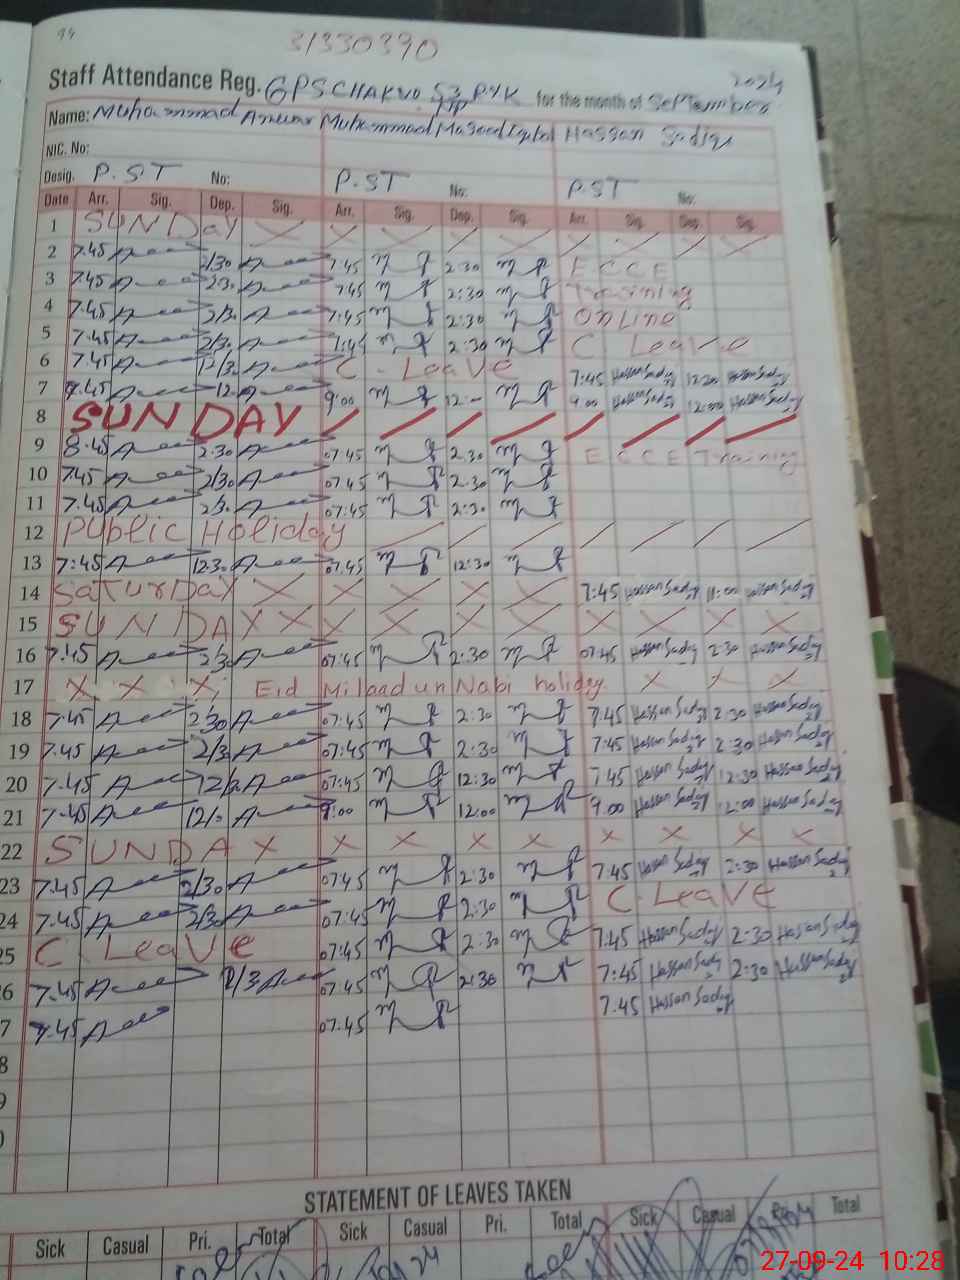 31330390
Staff Attendance Reg. GPS CHAK NO. 53 RYK for the month of September 2024
Name: Muhammad Anwar Muhammad Masood Iqbal Hassan Sadiq
NIC. No:
Desig. P.ST No: P.ST No: PST No:
Date Arr. Sig. Dep. Sig. Arr. Sig. Dep. Sig. Arr. Sig. Dep. Sig.
1 SUNDAY X X X X X / X / X
2 7.45 2/30 7:45 2:30 E C C E
3 7.45 2/3. 7:45 2:30 Training
4 7.45 2/3. 7:45 2:30 Online
5 7.45 2/3. 7:45 2:30 C Leave
6 7.45 12/3. C. Leave 7:45 Hassan Sadiq 12:30 Hassan Sadiq
7 12. 9:00 12:- 9:00 Hassan Sadiq 12:00 Hassan Sadiq
8 SUNDAY / / / / / / / /
9 8.45 2.30 07:45 2.30 E C C E Training
10 7.45 2/30 07:45 2.30
11 7.45 2/3. 07:45 2:30
12 Public Holiday / / / / / / /
13 7:45 12.3. 07.45 12:30
14 SATURDAY X X X X X 7:45 Hassan Sadiq 11:00 Hassan Sadiq
15 SUNDAY X X X X X X X X X X
16 7.45 2/3. 07:45 2:30 07:45 Hassan Sadiq 2:30 Hassan Sadiq
17 X X X Eid Milaad un Nabi holiday. X X X
18 7.45 2/30 07:45 2:30 7:45 Hassan Sadiq 2:30 Hassan Sadiq
19 7.45 2/3. 07:45 2:30 7:45 Hassan Sadiq 2:30 Hassan Sadiq
20 7.45 12/3. 07:45 12:30 7:45 Hassan Sadiq 12:30 Hassan Sadiq
21 7.45 12/. 9:00 12:00 9:00 Hassan Sadiq 12:00 Hassan Sadiq
22 SUNDAY X X X X X X X X
23 7.45 2/30 07:45 2:30 7:45 Hassan Sadiq 2:30 Hassan Sadiq
24 7.45 2/30 07:45 2:30 C. Leave
25 C Leave 07:45 2:30 7:45 Hassan Sadiq 2:30 Hassan Sadiq
6 7.45 07:45 2:30 7:45 Hassan Sadiq 2:30 Hassan Sadiq
7 7.45 07:45 7.45 Hassan Sadiq
8
9
0
STATEMENT OF LEAVES TAKEN
Sick Casual Pri. Total Sick Casual Pri. Total Sick Casual Pri. Total
27-09-24 10:28